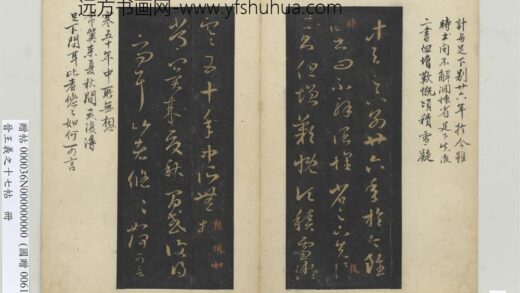 远方书画网-www.yfshuhua.com
計与足下別廿六年於今雖
時書問不解闊懷省足下先後
二書但增歎慨頃積雪凝
計与足下別廿六年於今雖
時書問不解闊懷省足下先後
二書但增歎慨頃積雪凝
寒五十年中所無想頃如
常冀來夏秋間或復得足
下問耳比者悠悠如何可言
寒五十年中所無想
常冀來夏秋間或復得
足下問耳比者悠悠如何可言
贈帖 000036N000000000 (國贈 0061
晉王羲之十七帖 冊